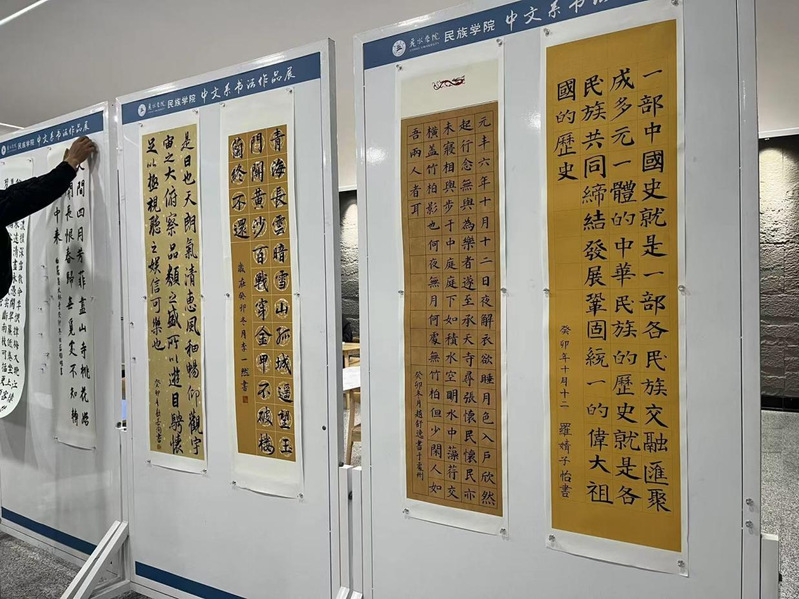 民族学院 中文系书法作品展
間四月芳菲盡山寺桃花始
長恨春歸無覓處不知轉
中來
民族学院 中文系书法作品展
是日也天朗氣清惠風和暢仰觀宇
宙之大俯察品類之盛所以遊目騁懷
足以極視聽之娛信可樂也
青海長雲暗雪山孤城遥望玉
門關黄沙百戰穿金甲不破樓
蘭終不還
歲在癸卯冬月李一然書
民族学院 中文系书法
元丰六年十月十二日夜解衣欲睡月色入戸欣然
起行念無與為樂者遂至承天寺尋張懷民懷民亦
未寢相與步于中庭庭下如積水空明水中藻荇交
横盖竹柏影也何夜無月何處無竹柏但少閑人如
吾兩人者耳
癸卯冬月趙舒逸書于處州
一部中國史就是一部各民族交融匯聚
成多元一體的中華民族的歷史就是各
民族共同締結發展鞏固統一的偉大祖
國的歷史
癸卯年十月十二 羅婧子怡書